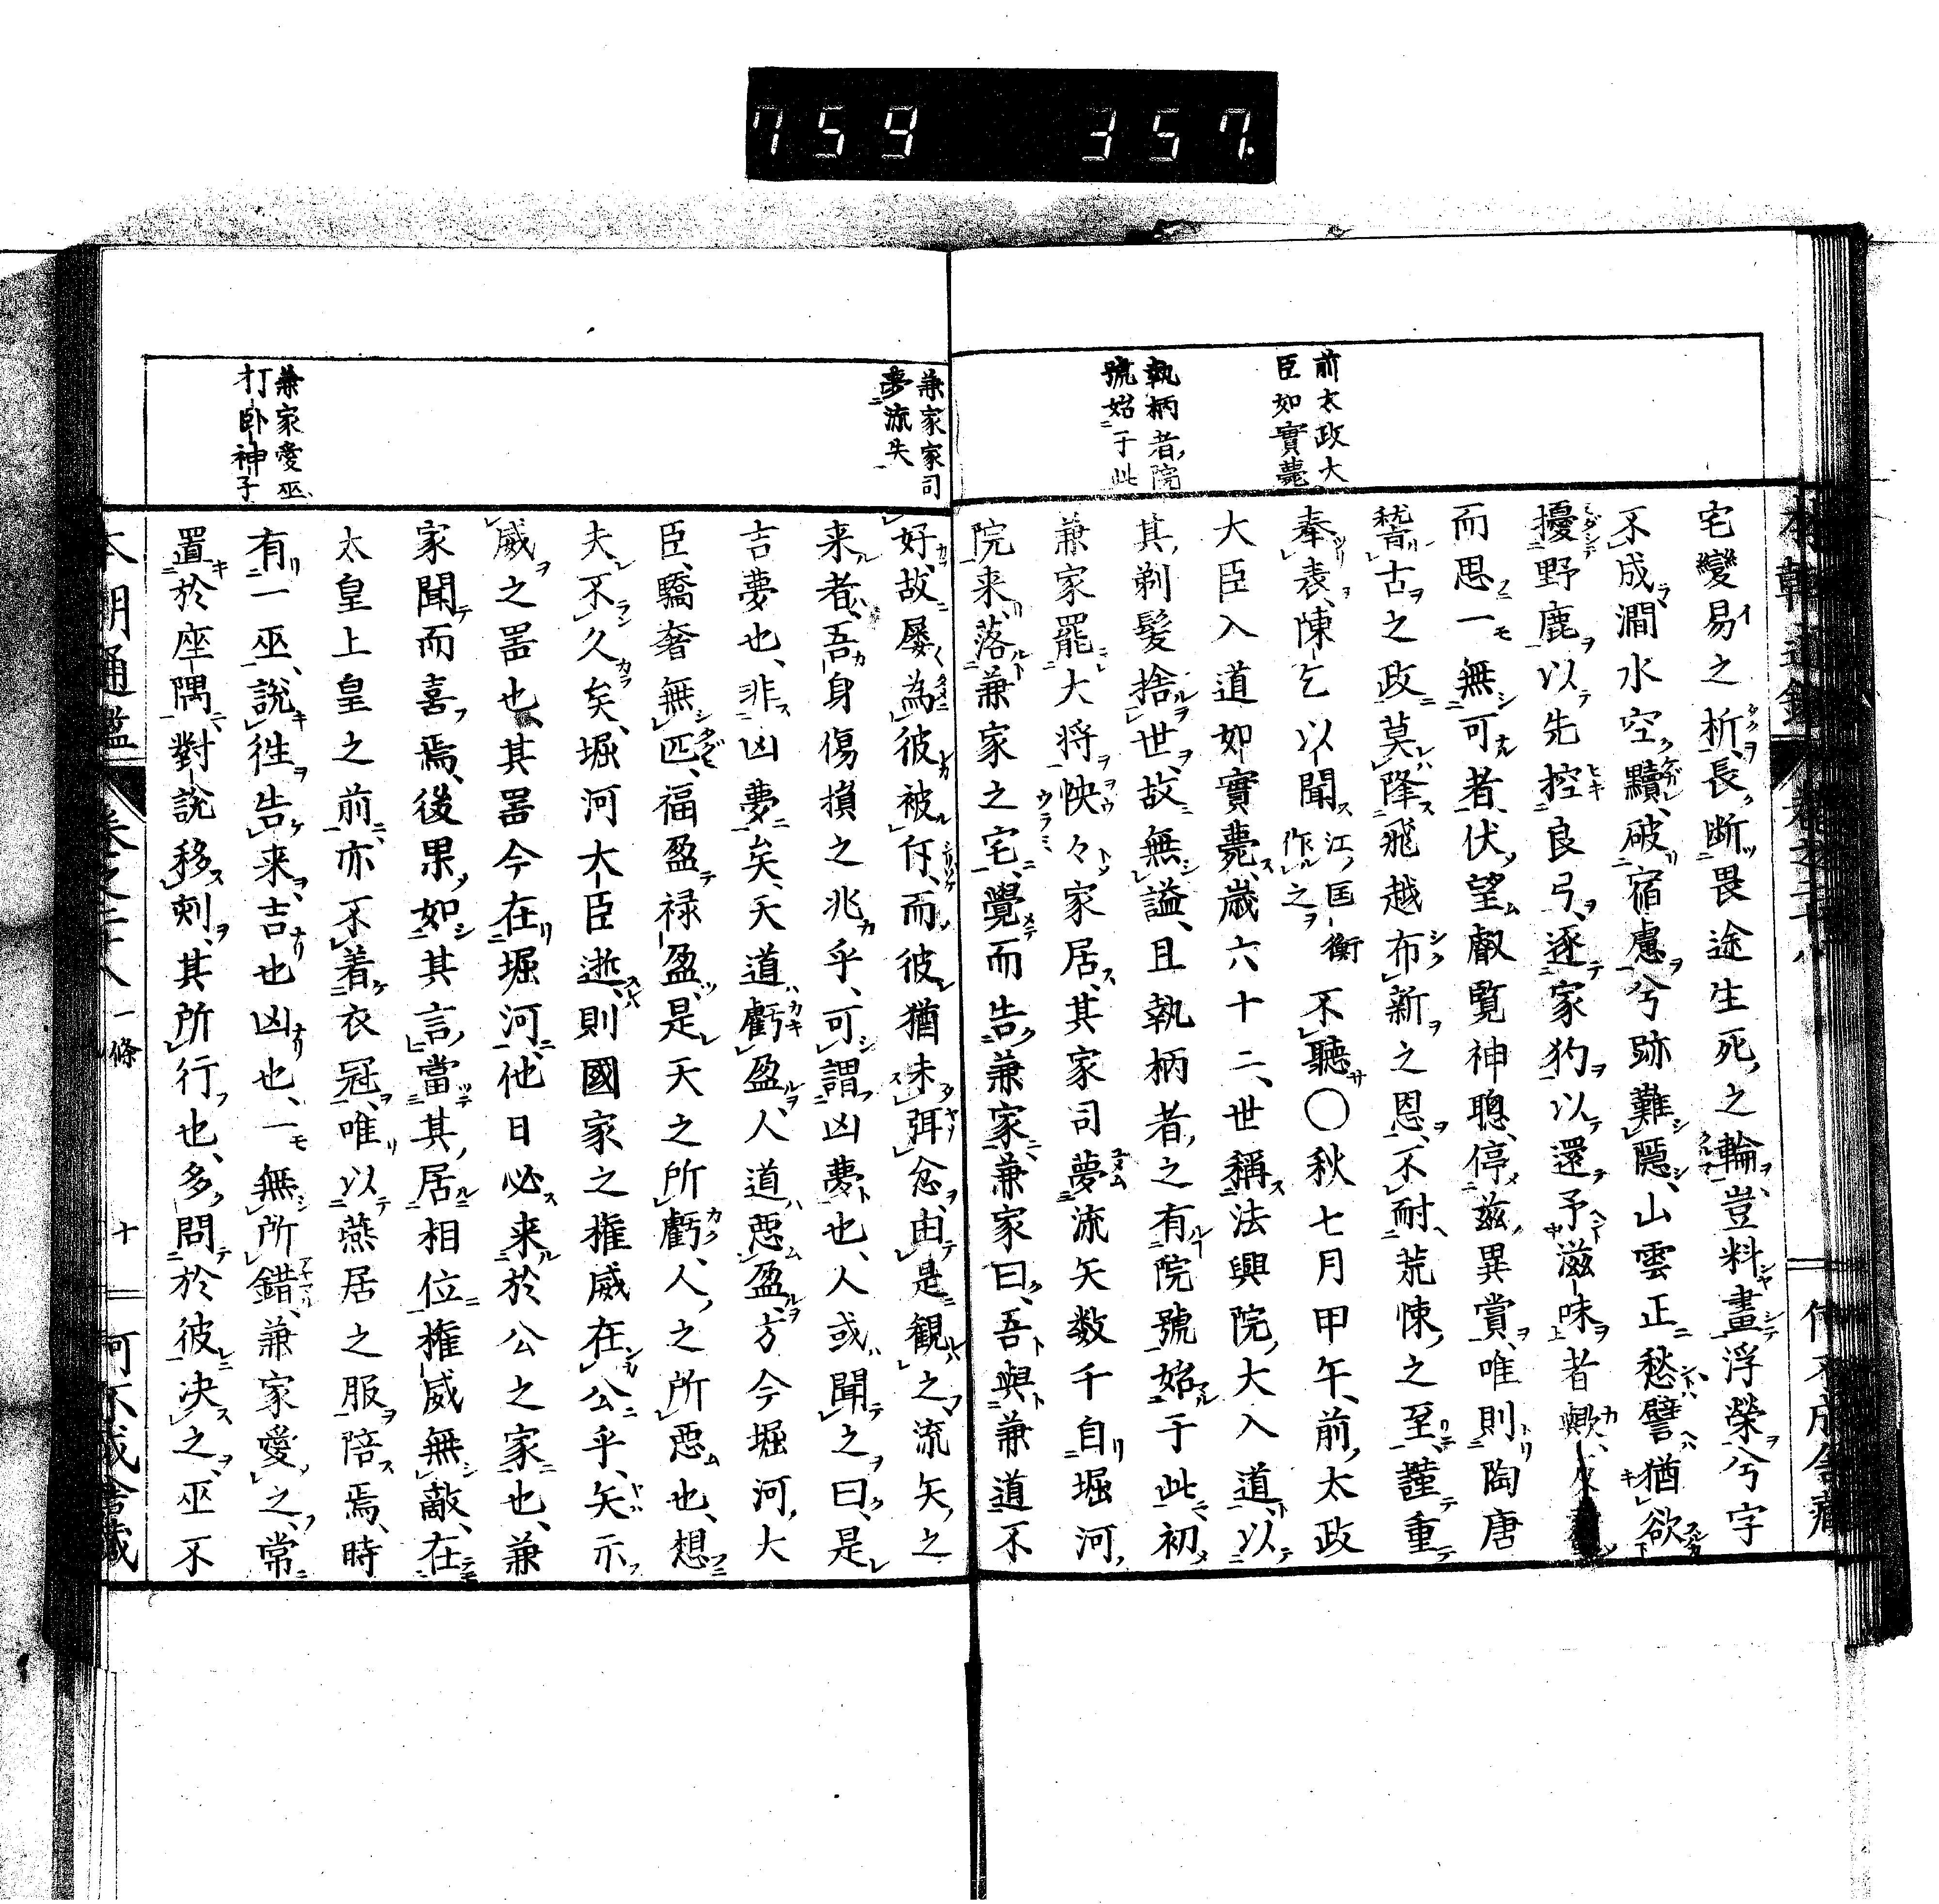 759 357
前太政大
臣如實薨
執柄者院
號始于此
宅變易之析長断畏途生死之輪豈料畫浮榮兮字
不成澗水空黷破宿慮兮跡難隱山雲正愁譬猶欲
擾野鹿以先控良弓逐家犳以還予滋味者歟
而思一無可者伏望叡覧神聰停兹異賞唯則陶唐
嵆古之政莫降飛越布新之恩不耐荒悚之至謹重
奉表陳乞以聞江匡衡作之不聽〇秋七月甲午前太政
大臣入道如實薨歳六十二世稱法興院大入道以
其剃髮捨世故無謚且執柄者之有院號始于此初
兼家罷大将怏々家居其家司夢流矢数千自堀河
院来落兼家之宅覺而告兼家兼家曰吾與兼道不
兼家家司
夢流矢
兼家愛巫
打卧神子
好故屡為彼被斥而彼猶未弭忿由是観之流矢之
来者吾身傷損之兆乎可謂凶夢也人或聞之曰是
吉夢也非凶夢矣天道虧盈人道惡盈方今堀河大
臣驕奢無匹福盈禄盈是天之所虧人之所惡也想
夫不久矣堀河大臣逝則國家之権威在公乎矢示
威之噐也其噐今在堀河他日必来於公之家也兼
家聞而喜焉後果如其言當其居相位権威無敵在
太皇上皇之前亦不着衣冠唯以燕居之服陪焉時
有一巫説徃告来吉也凶也一無所錯兼家愛之常
置於座隅對説移刺其所行也多問於彼決之巫不
本朝通鑑 卷之二十八 一條 十